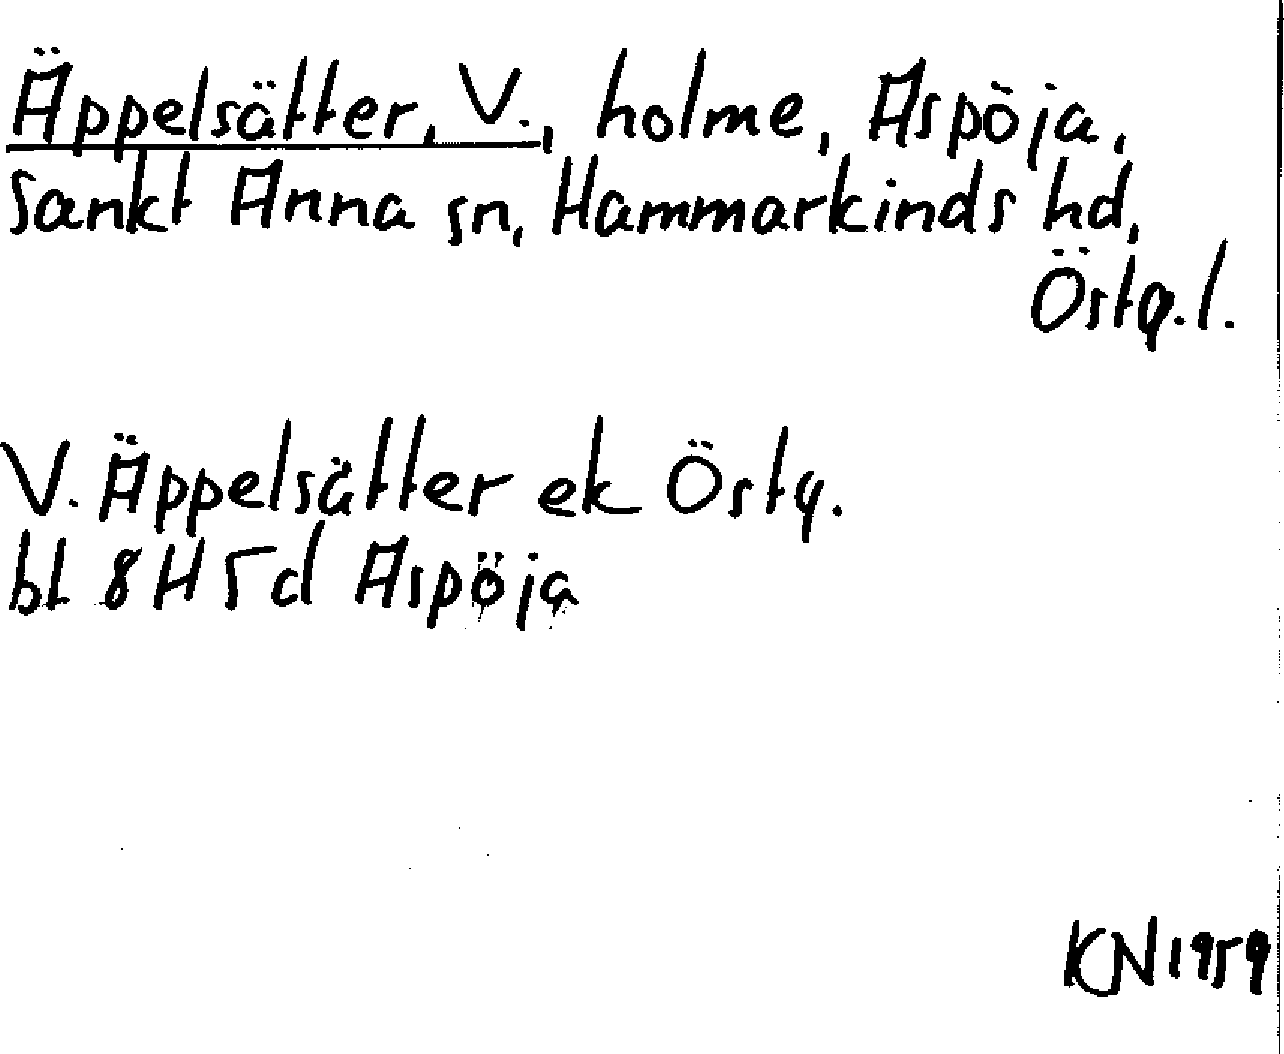 Äppelsätter, V., holme, Aspöja,
Sankt Anna sn, Hammarkinds hd,
Östg.l.
V. Äppelsätter ek Östg.
bl 8H 5d Aspöja
KN 1959